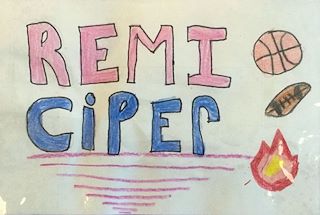 REMI
CiPEr